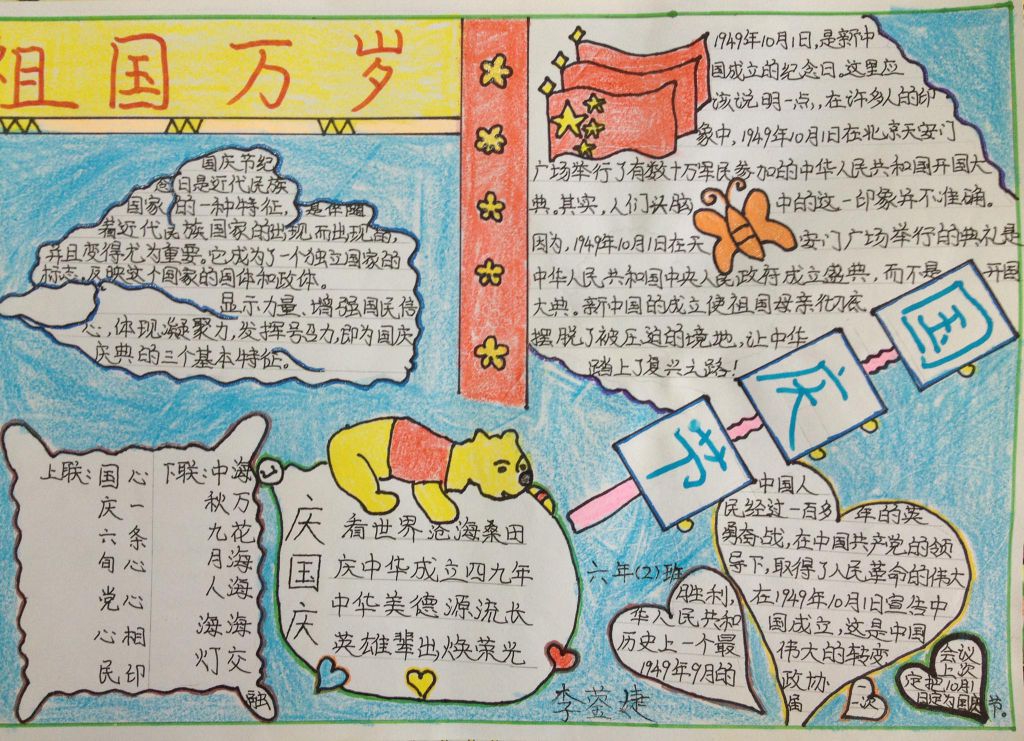 祖国万岁
国庆节纪
念日是近代民族
国家的一种特征,是伴随
着近代民族国家的出现而出现的,
并且变得尤为重要。它成为了一个独立国家的
标志,反映这个国家的国体和政体。
显示力量、增强国民信
心,体现凝聚力,发挥号召力,即为国庆
庆典的三个基本特征。
1949年10月1日,是新中
国成立的纪念日。这里应
该说明一点,,在许多人的印
象中,1949年10月1日在北京天安门
广场举行了有数十万军民参加的中华人民共和国开国大
典。其实,人们头脑中的这一印象并不准确。
因为,1949年10月1日在天安门广场举行的典礼是
中华人民共和国中央人民政府成立盛典,而不是开国
大典。新中国的成立使祖国母亲彻底
摆脱了被压迫的境地,让中华
踏上了复兴之路!
国庆节
上联:国庆六旬党心民
心一条心心相印
下联:中秋九月人海灯
海万花海海交融
庆国庆
看世界沧海桑田
庆中华成立四九年
中华美德源流长
英雄辈出焕荣光
六年(2)班
中国人
民经过一百多年的英
勇奋战,在中国共产党的领
导下,取得了人民革命的伟大
胜利,
在1949年10月1日宣告中
华人民共和
国成立,这是中国
历史上一个最
伟大的转变
1949年9月的
政协
一届
一次
会议
上次
定把10月1
日定为国庆节。